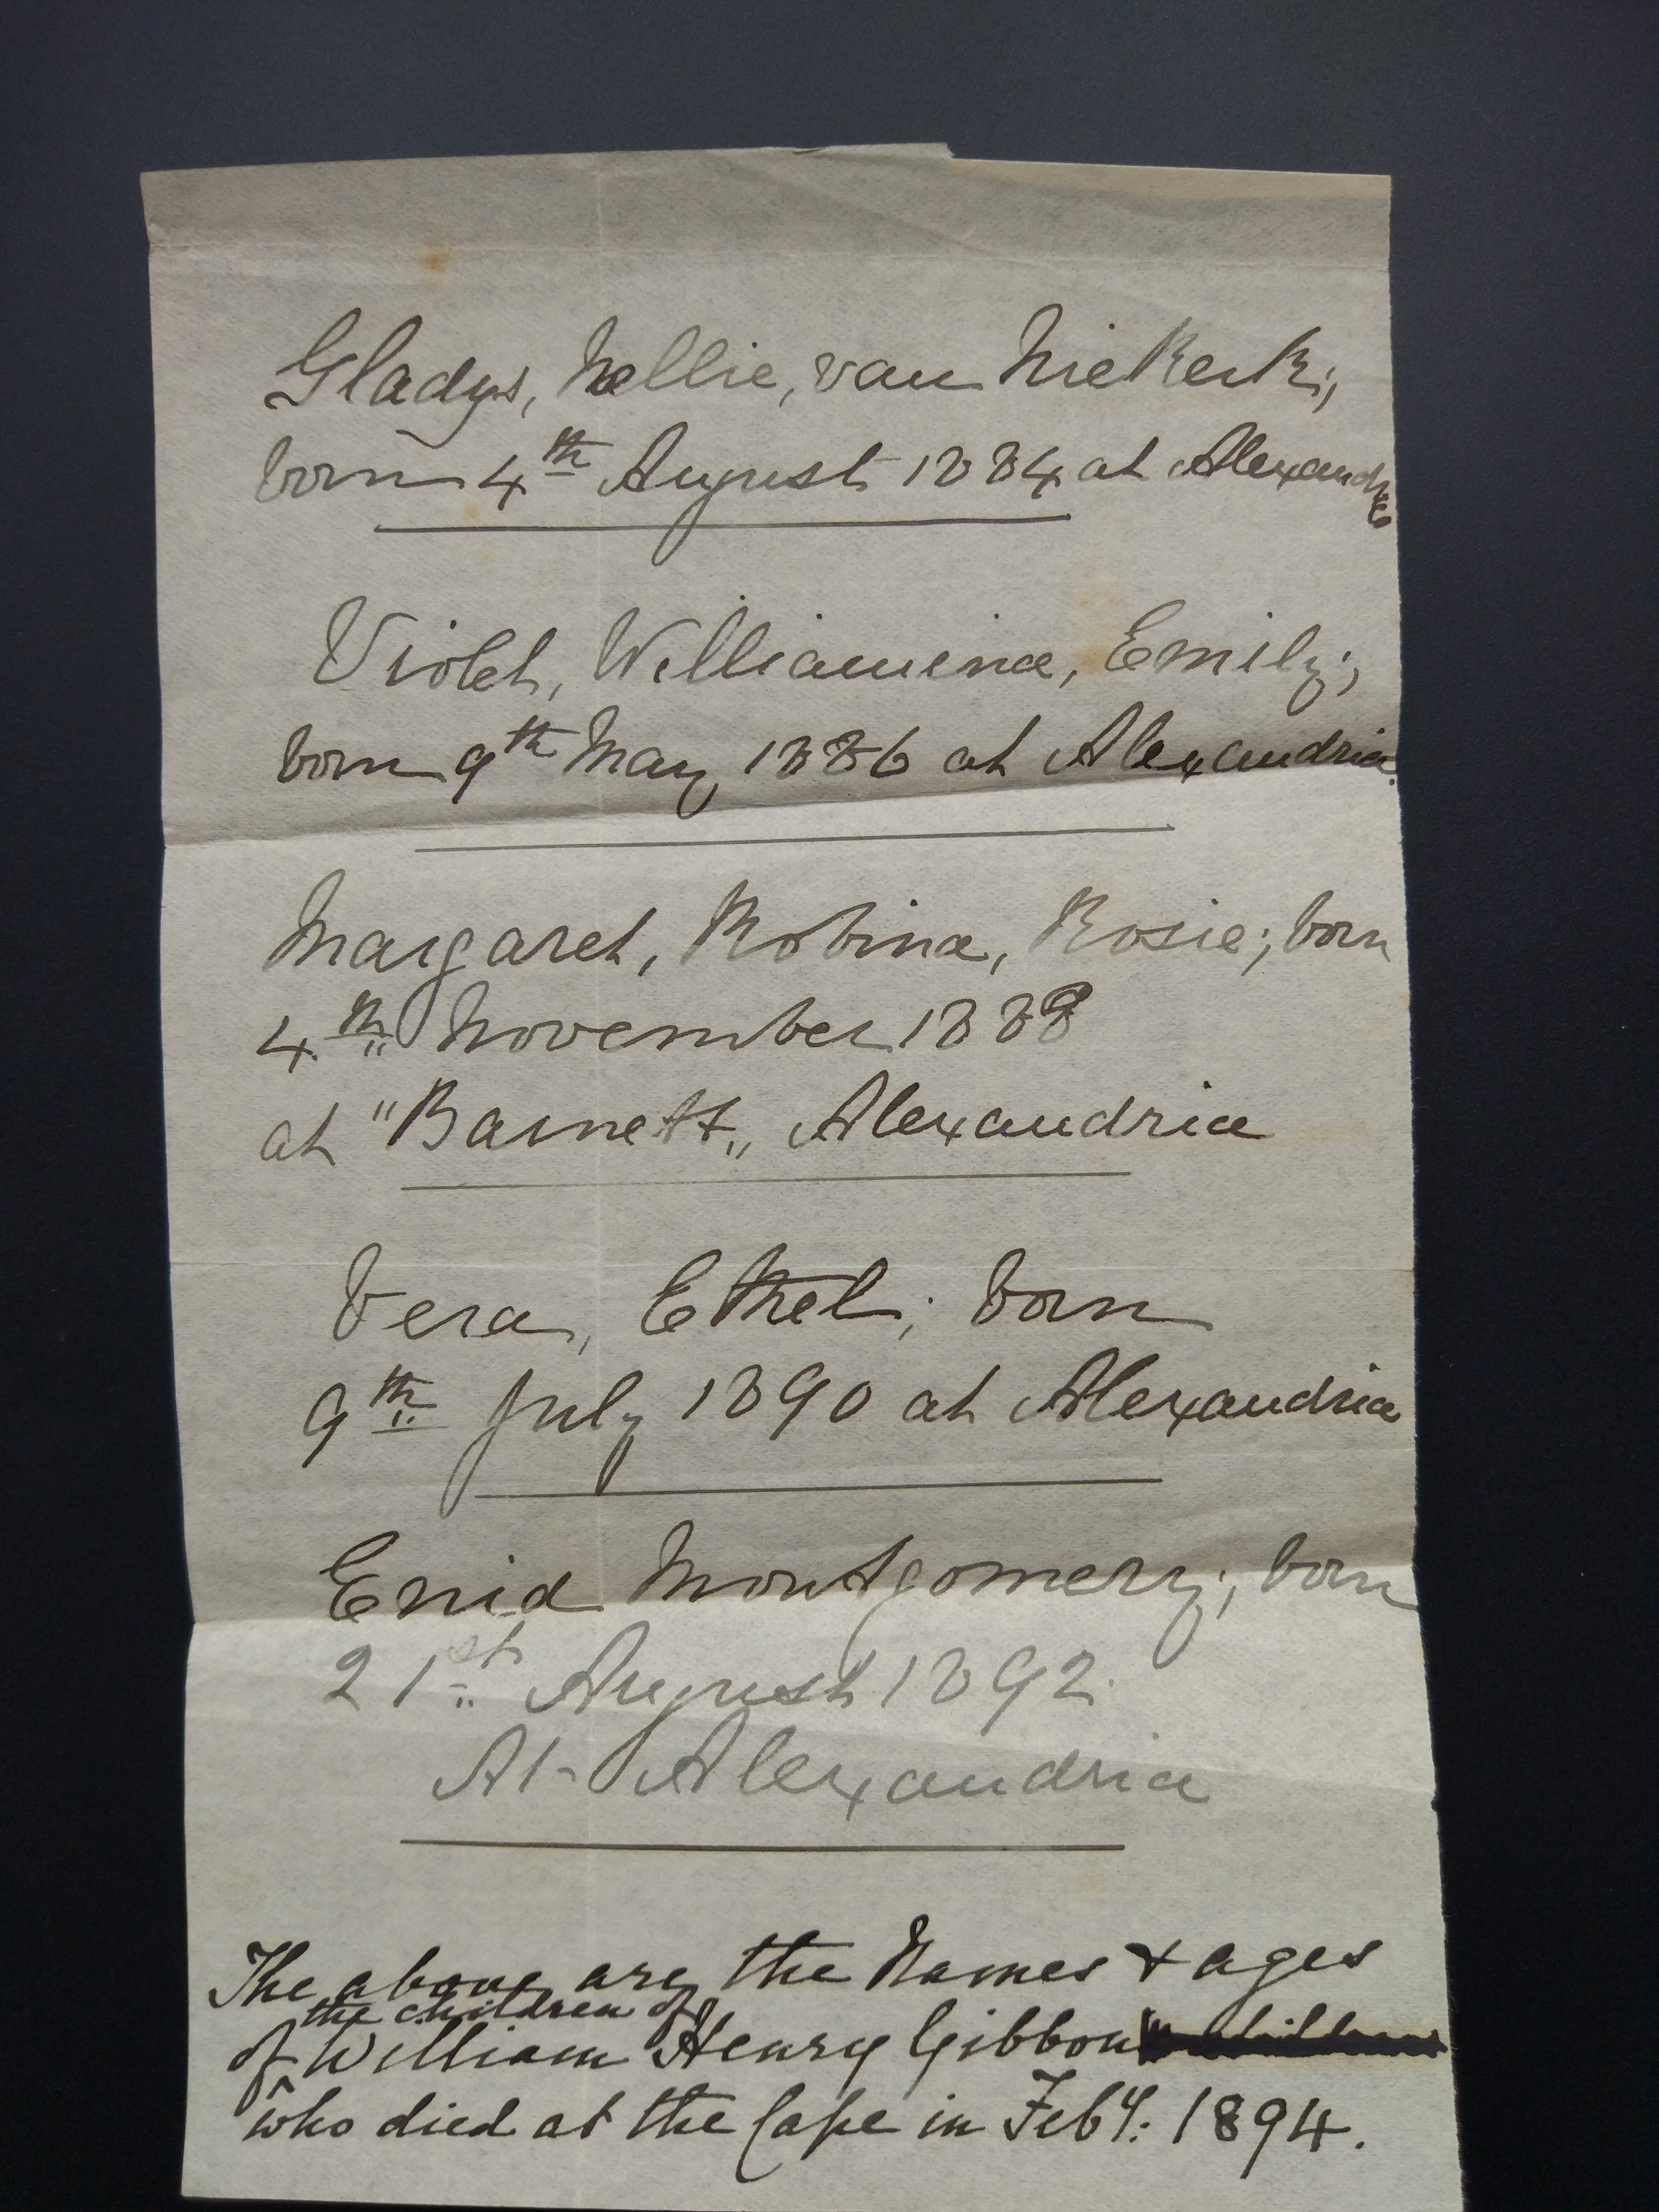 Gladys, Nellie, van Niekerk;
born 4th August 1884 at Alexandria
Violet, Williamina, Emily;
born 9th May 1886 at Alexandria.
Margaret, Robina, Rosie; born
4th November 1888
at "Barnett" Alexandria
Vera, Ethel; born
9th July 1890 at Alexandria
Enid Montgomery; born
21st August 1892.
At Alexandria
The above are the Names & ages
the children of
of William Henry Gibbon
who died at the Cape in Feby. 1894.